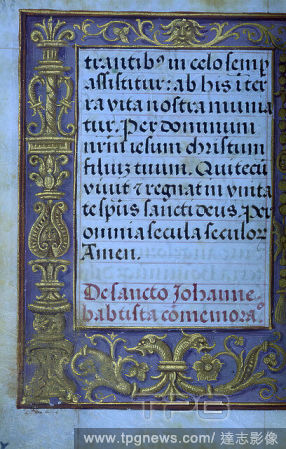 trantibꝰ in celo semp
assistitur: ab his i ter
ra vita nostra munia
tur. Per dominum
nrm iesum christum
filiuʒ tuum. Qui tecū
viuit ⁊ regnat in vnita
te spūs sancti deus. Per
omnia secula seculoꝝ
Amen.
De sancto Johanne
baptista cōmemora°.
TPG
www.tpgnews.com/ 達志影像